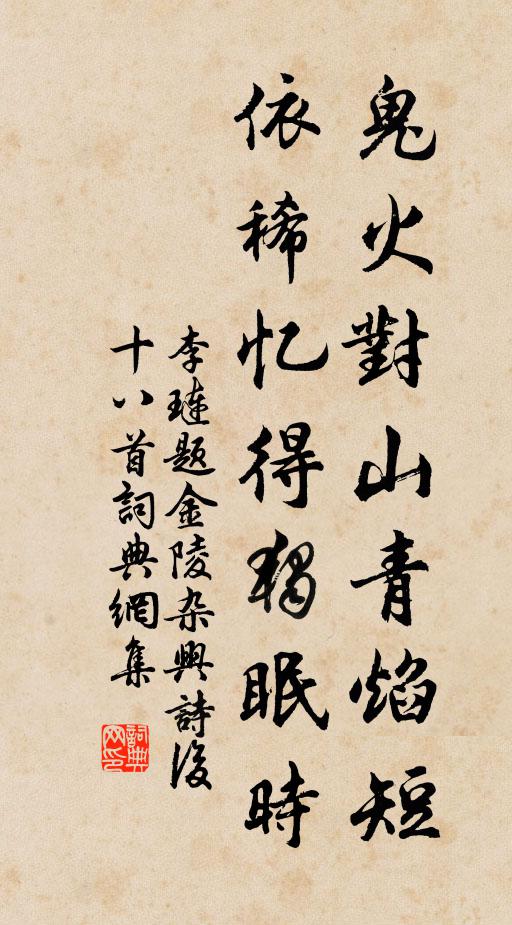 鬼火對山青焰短
依稀忆得獨眠時
李璉题金陵杂興詩後
十八首詞典網集
詞典网印